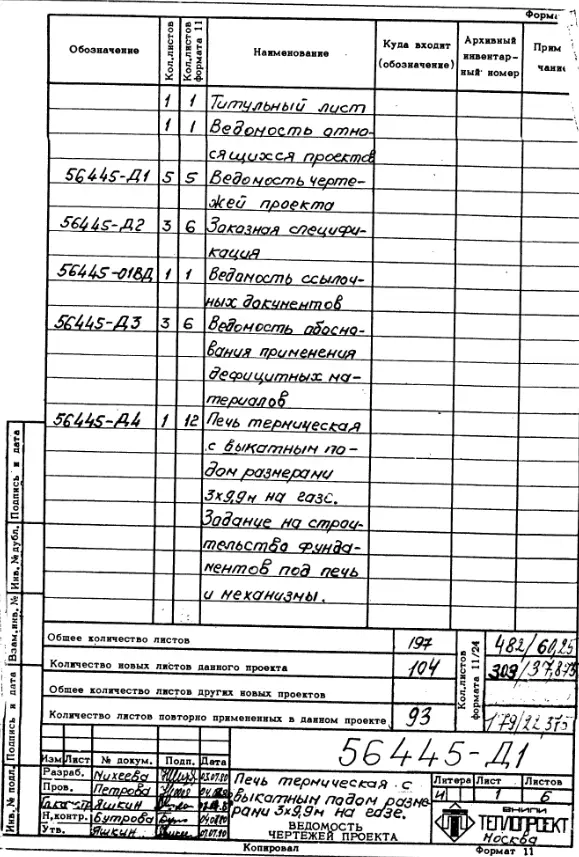 Форма
Обозначение Кол.листов Кол.листов формата 11 Наименование Куда входит (обозначение) Архивный инвентарный номер Прим чани
1 1 Титульный лист
1 1 Ведомость отно-
сящихся проектов
56445-Д1 5 5 Ведомость черте-
жей проекта
56445-Д2 3 6 Заказная специфи-
кация
56445-01ВД 1 1 Ведомость ссылоч-
ных документов
56445-Д3 3 6 Ведомость обосно-
вания применения
дефицитных ма-
териалов
56445-Д4 1 12 Печь термическая
с выкатным по-
дом размерами
3х9,9м на газе.
Задание на строи-
тельство фунда-
ментов под печь
и механизмы.
Общее количество листов 197 482/60,25
Количество новых листов данного проекта 104 303/37,875
Общее количество листов других новых проектов
Количество листов повторно примененных в данном проекте 93 179/22,375
Кол.листов формата 11/24
56445-Д1
Изм Лист № докум. Подп. Дата
Разраб. Михеева 03.07.80
Пров. Петрова
Яшкин
Н.контр. Бутрова
Утв. Яшкин 07.07.80
Печь термическая с
выкатным подом разме-
рами 3х9,9м на газе.
ВЕДОМОСТЬ
ЧЕРТЕЖЕЙ ПРОЕКТА
Литера Лист Листов
И 1 6
ВНИПИ
ТЕПЛОПРОЕКТ
Москва
Копировал Формат 11
Инв.№ подл. Подпись и дата Взам.инв.№ Инв.№дубл. Подпись и дата